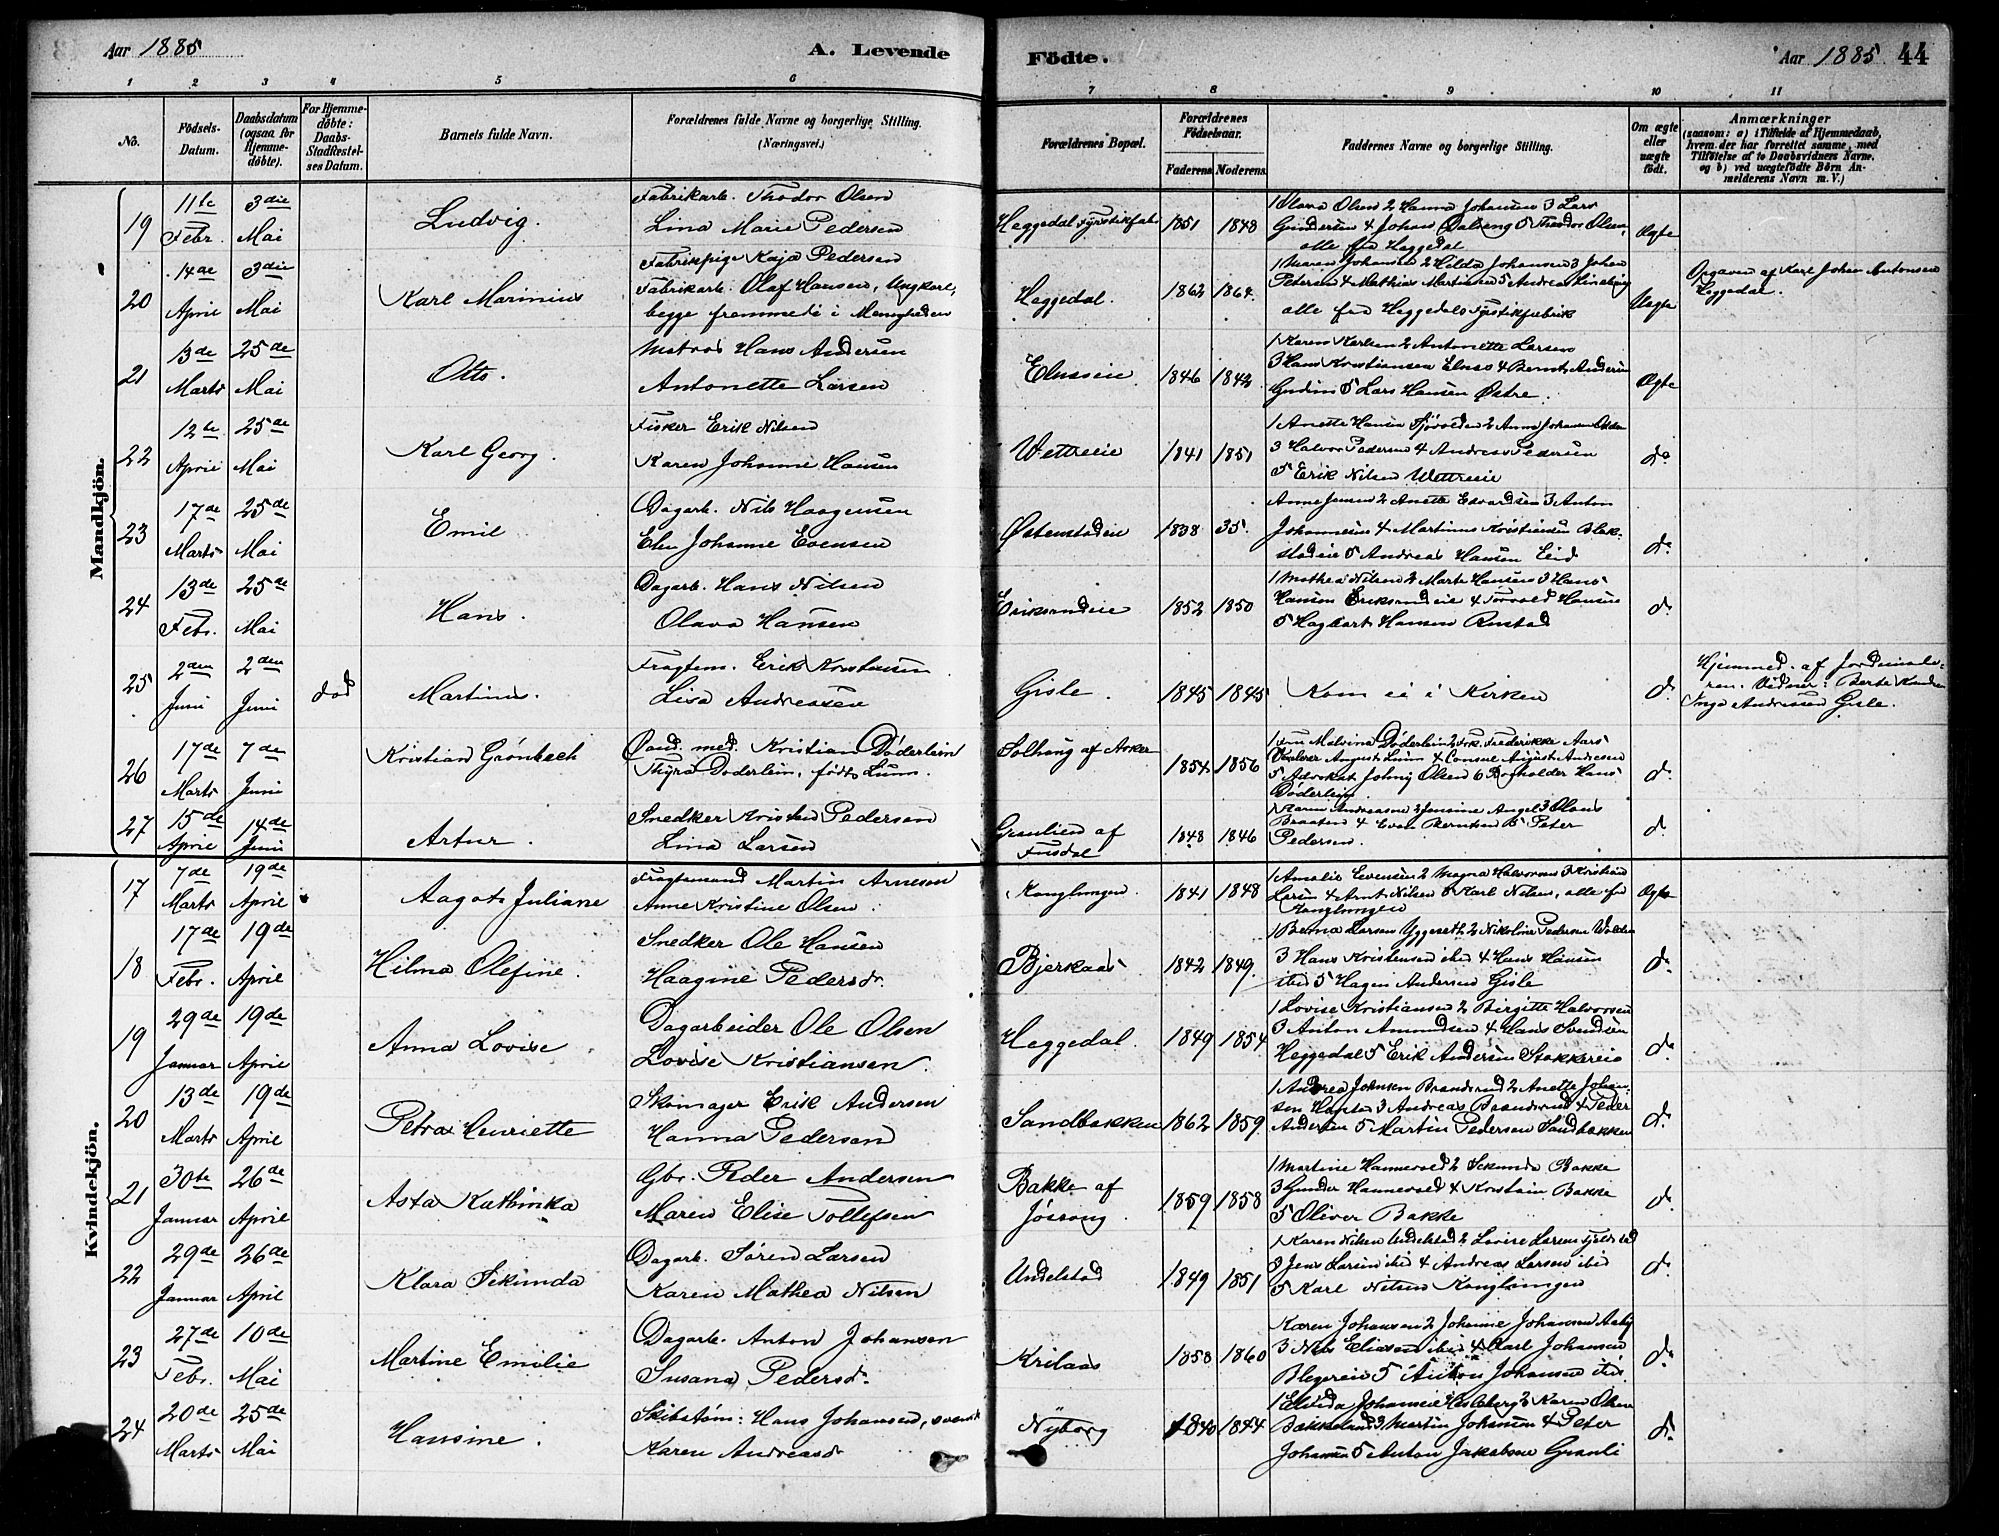 Aar 1885
A. Levende
Födte.
Aar 1885
44
1 2 3 4 5 6 7 8 9 10 11
No.
Födsels-
Datum.
Daabsdatum
(ogsaa for
Hjemme-
döbte).
For Hjemme-
døbte:
Daabs-
Stadfæstel-
ses Datum.
Barnets fulde Navn.
Forældrenes fulde Navne og borgerlige Stilling.
(Næringsvei.)
Forældrenes Bopæl.
Forældrenes
Födselsaar.
Faderens Moderens
Faddernes Navne og borgerlige Stilling.
Om ægte
eller
uægte
født.
Anmærkninger
(saasom: a) i Tilfælde af Hjemmedaab,
hvem der har forrettet samme, med
Tilföielse af to Daabsvidners Navne.
og b) ved uægtefödte Börn An-
melderens Navn m. V.)
Mandkjön.
19
11te
Febr.
3die
Mai
Ludvig.
Fabrikarb. Thodor Olsen
Lina Marie Pedersen
Heggedal Fyrstikfab
1851 1848
1 Olava Olsen 2 Hanna Johansen 3 Lars
Gundersen 4 Johans Dalseng 5 Theodor Olsen,
alle fra Heggedal
Ægte
20
14de
April
3die
Mai
Karl Marinius
Fabrikpige Kaja Pedersen
Fabrikarb. Olaf Hansen, Ungkarl,
begge fremmede i Menigheden
Heggedal.
1862 1864.
1 Maren Johansen 2 Hilda Johansen 3 Johan
Petersen 4 Mathias Martinsen 5 Andreas
alle fra Heggedals Fyrstikfabrik
Uægte
Opgaven af Karl Johan Antonsen
Heggedal.
21
13de
Marts
25de
Mai
Otto.
Matros Hans Andersen
Antonette Larsen
Elnesseie
1846 1842
1 Karen Karlsen 2 Antonette Larsen
3 Hans Kristiansen Elnes 4 Bernt Andersen
5 Lars Hansen Østre.
Ægte
22
12te
April
25de
Mai
Karl Georg.
Fisker Erik Nilsen
Karen Johanne Hansen
Wettreeie
1841 1851
1 Anette Hansen 2 Anna Johansen
3 Halvor Pedersen 4 Andreas Pedersen
5 Erik Nilsen Wettreeie
do
23
17de
Marts
25de
Mai
Emil
Dagarb. Nils Haagensen
Elen Johanne Evensen
Østenstadeie
1838 35.
Anne Jensen 2 Anette Edvardsen 3 Anton
Johannesen 4 Martinus Kristiansen Blak-
stadeie 5 Andreas Hansen Eid
do
24
13de
Febr.
25de
Mai
Hans.
Dagarb. Hans Nilsen
Olava Hansen
Eriksrudeie
1852 1850
1 Mathea Nilsen 2 Marte Hansen 3 Hans
Hansen Eriksrudeie 4 Torvald Hansen
5 Hagbart Hansen Rustad
do
25
2den
Juni
2den
Juni
död
Martinus.
Fragtem. Erik Kristensen
Lisa Andreasen
Gisle.
1845 1845
Kom ei i Kirken
do
Hjemmed. af Jordmode-
ren. Vidner: Berte Knudsen
Inga Andreassen Gisle.
26
17de
Marts
7de
Juni
Kristian Grönbech
Cand. med. Kristian Döderlein
Thyra Döderlein, født Lum.
Solhaug af Asker
1854 1856
1 Fru Malvina Döderlein 2 Frk. Frederikke Aars
August Lum 4 Consul August Andresen
5 Advokat Johny Olsen 6 Bogholder Hans
Döderlein.
do
27
15de
April
14de
Juni
Artur.
Snedker Kristen Pedersen
Lina Larsen
Granlien af
Fusdal
1848 1846
1 Karen Andreasen 2 Jensine Angel 3 Olaus
Braaten 4 Even Berntsen 5 Peter
Pedersen.
do
Kvindekjön.
17
7de
Marts
19de
April
Aagot Juliane
Fragtemand Martin Arnesen
Anne Kristine Olsen.
Konglungen.
1841 1848
1 Amalie Evensen 2 Magna Halvorsen 3 Kristian
Larsen 4 Arnt Nilsen 5 Karl Nilsen, alle fra
Konglungen
Ægte
18
17de
Febr.
19de
April
Hilma Olefine.
Snedker Ole Hansen
Haagine Pedersdr.
Bjerkaas
1842 1849.
1 Berna Larsen Yggeseth 2 Nikoline Pedersen Wolden
3 Hans Kristensen ibid 4 Hans Hansen
ibid 5 Hagen Andersen Gisle
do
19
29de
Januar
19de
April
Anna Lovise
Dagarbeider Ole Olsen
Lovise Kristiansen.
Heggedal.
1849 1854
1 Lovise Kristiansen 2 Birgitte Halvorsen
3 Anton Amundsen 4 Hans Svendsen
Heggedal 5 Erik Andersen Stokkereie
do
20
13de
Marts
19de
April
Petra Henriette
Skomager Erik Andersen
Hanna Pedersen
Sandbakken
1862 1859.
1 Andrea Johnsen Brandsrud 2 Anette Johan-
sen 3 Andreas Brandsrud 4 Peder
Andersen 5 Martin Pedersen Sandbakken
do
21
30te
Januar
26de
April
Asta Kathinka
Gbr. Peder Andersen
Maren Elise Tollefsen
Bakke af
Jössong.
1859 1858
1 Martine Hannevold 2 Sekunda Bakke
3 Gunder Hannevold 4 Kristian Bakke
5 Oliver Bakke
do
22
29de
Januar
26de
April
Klara Sekunda
Dagarb. Sören Larsen
Karen Mathea Nilsen
Undelstad
1849 1851
1 Karen Nilsen Undelstad 2 Lovise Larsen
3 Jens Larsen ibid 4 Andreas Larsen ibid
5 Karl Nilsen Konglungen
do
23
27de
Febr.
10de
Mai
Martine Emilie
Dagarb. Anton Johansen
Susana Pedersdr.
Krilaas
1858 1860
Karen Johansen 2 Johanne Johansen Aaby
3 Nils Eliasen ibid 4 Karl Johansen
Blegereie 5 Anton Johansen ibid.
do
24
20de
Marts
25de
Mai
Hansine.
Skibstøm: Hans Johansen, svensk
Karen Andreasdr
Nyborg
1840 1844
1 Johansen 2 Karen Olsen
3 Martin Johansen 4 Peter
Johansen 5 Anton Jakobsen Granli
do